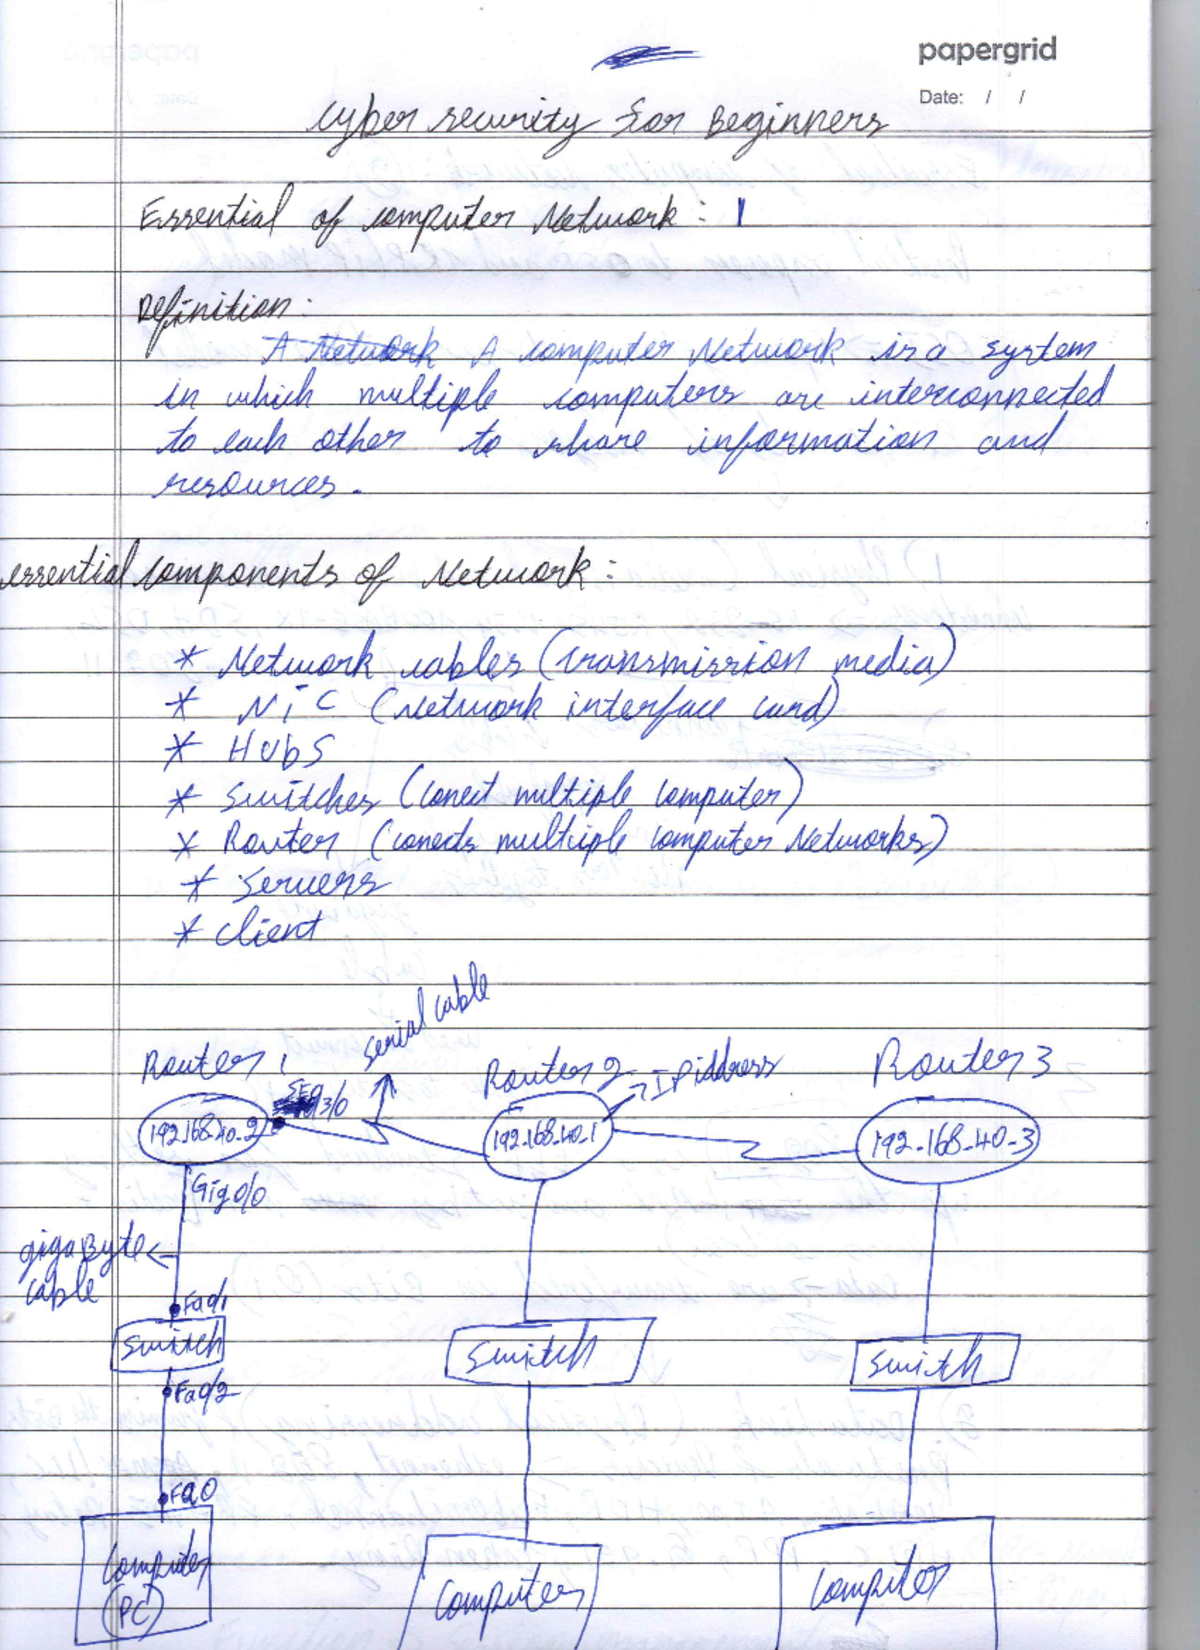 papergrid
Date: / /
Cyber security for Beginners
Essential of computer Network : 1
Definition :
A Network A computer Network is a system
in which multiple computers are interconnected
to each other to share information and
resources.
essential components of Network :
* Network cables (transmission media)
* NiC (Network interface card)
* Hubs
* Switches (conect multiple computer)
* Router (conects multiple computer Networks)
* Servers
* client
serial cable
Router 1
Router 2
IP iddress
Router 3
3/0
192.168.40.2
192.168.40.1
192.168.40.3
Gig0/0
gigaByte
cable
Fa0/1
Switch
Switch
Switch
Fa0/2
Fa0
Computer
(PC)
Computer
Computer